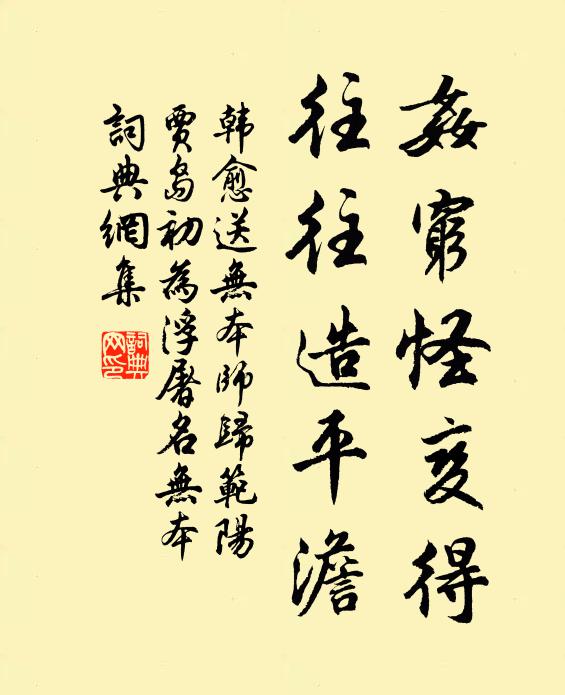 姦窮怪变得
往往造平澹
韓愈送無本師歸範陽
賈島初為浮屠名無本
詞典網集
詞典
网印